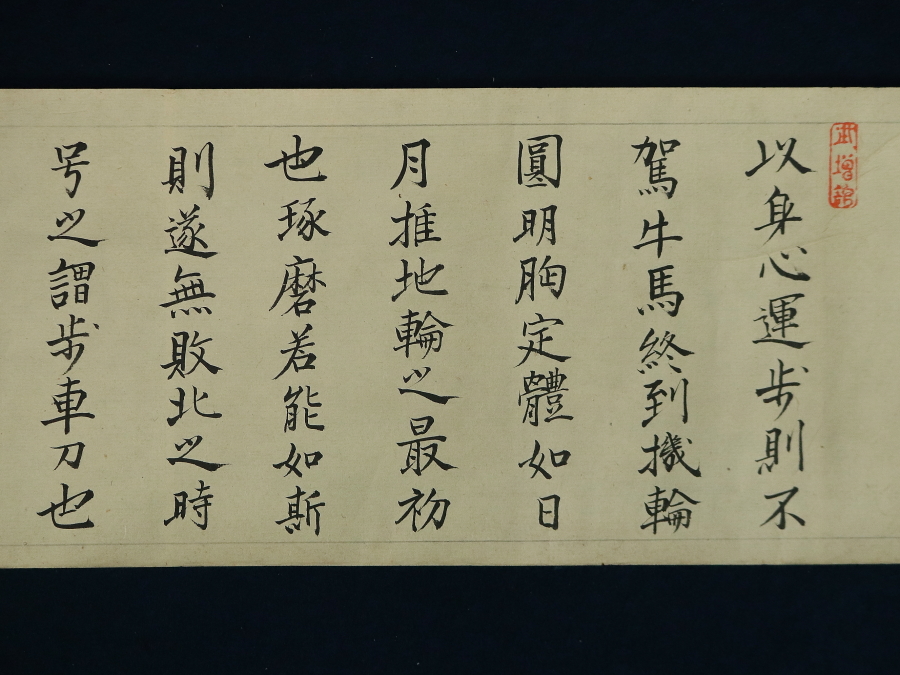 以身心運歩則不
駕牛馬終到機輪
圓明胸定體如日
月推地輪之最初
也琢磨若能如斯
則遂無敗北之時
号之謂歩車刀也